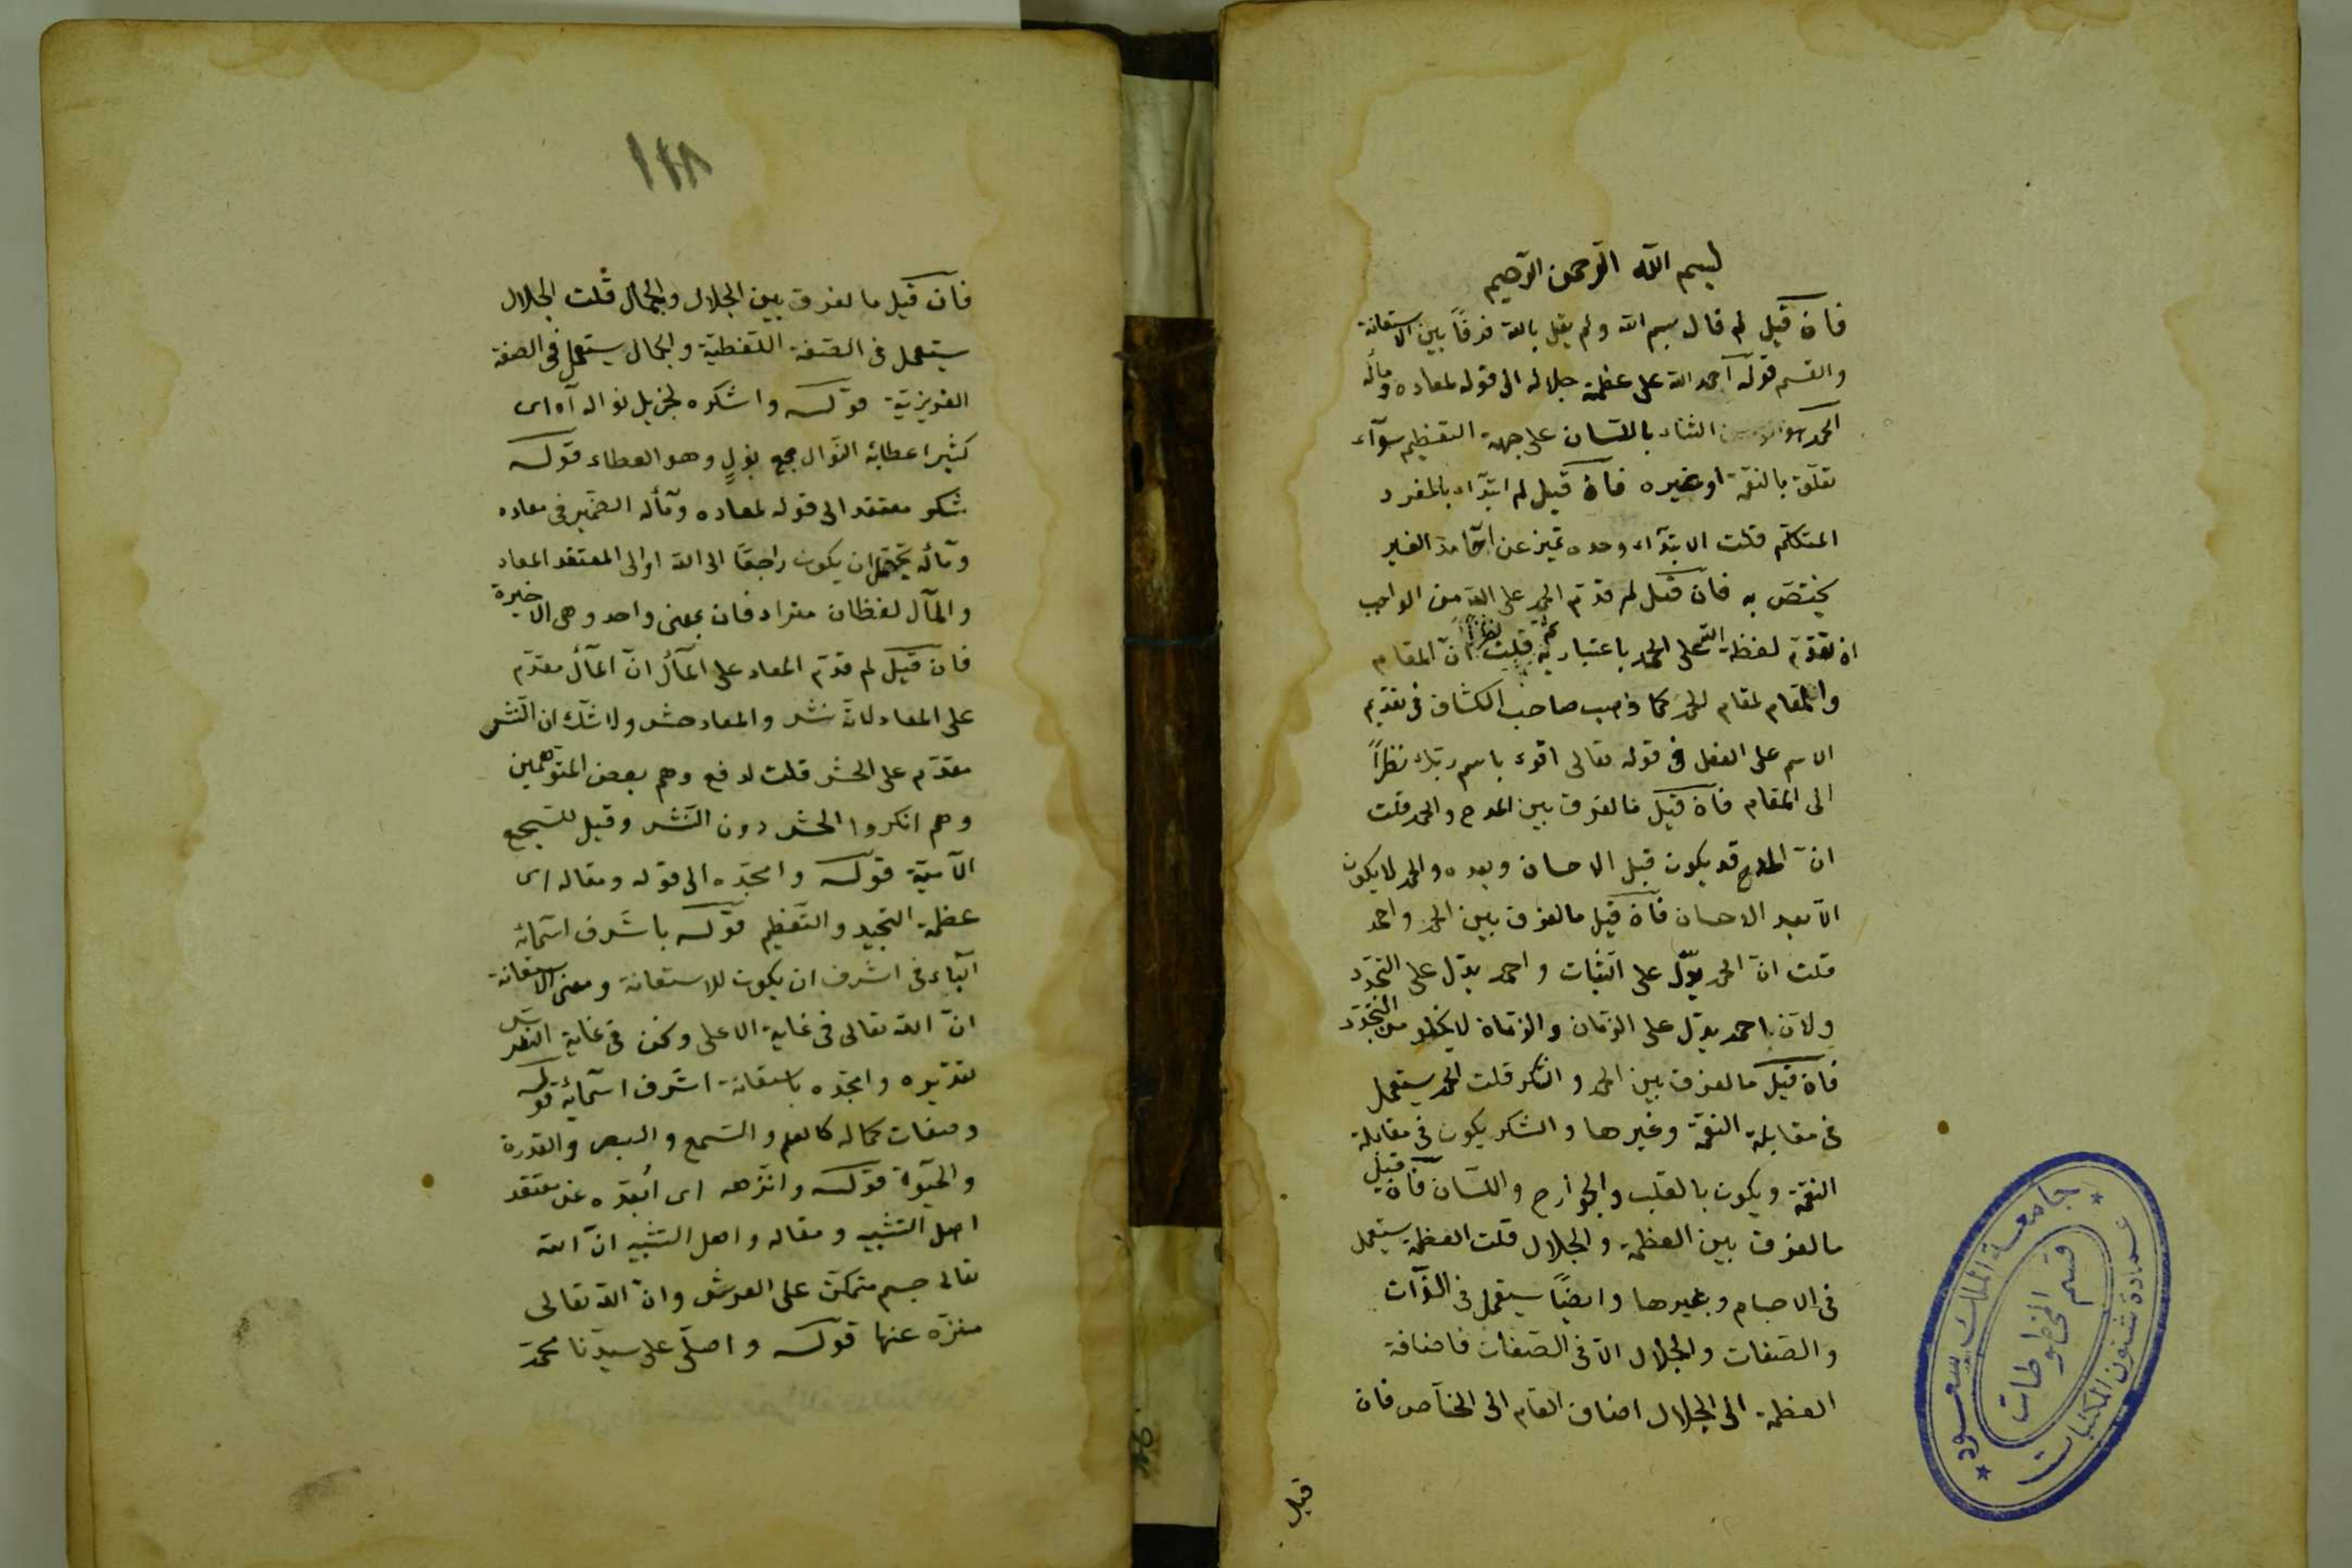 بسم الله الرحمن الرحيم
فان قيل لم قال بسم الله ولم يقل بالله فرقاً بين الاستعانة
والقسم قوله احمد الله على عظمة جلاله الى قوله لمعاده ومآله
الحمد هو الثناء باللسان على جهة التعظيم سوآء
تعلق بالنعمة او غيره فان قيل لم ابتداء بالمفرد
المتكلم قلت الابتدآء وحده تميز عن الغير
يختص به فان قيل لم قدم الحمد على الله من الواجب
ان تقدم لفظة الله على الحمد باعتبار قلت نظراً ان المقام
والمقام لمقام الحمد كما ذهب صاحب الكشاف في تقديم
الاسم على الفعل في قوله تعالى اقرء باسم ربك نظراً
الى المقام فان قيل فالفرق بين المدح والحمد قلت
ان المدح قد يكون قبل الاحسان وبعده والحمد لا يكون
الا بعد الاحسان فان قيل مالفرق بين الحمد واحمد
قلت ان الحمد يدل على الثبات واحمد يدل على التجدد
ولان احمد يدل على الزمان والزمان لا يخلو من التجدد
فان قيل مالفرق بين الحمد والشكر قلت الحمد يستعمل
في مقابلة النعمة وغيرها والشكر يكون في مقابلة
النعمة ويكون بالقلب والجوارح واللسان فان قيل
مالفرق بين العظمة والجلال قلت العظمة يستعمل
في الاجسام وبغيرها وايضاً يستعمل في الذات
والصفات والجلال الا في الصفات فاضافة
العظمة الى الجلال اضاف العام الى الخاص فان
قيل
جامعة الملك سعود
عمادة شئون المكتبات
قسم المخطوطات
١٢٨
فان قيل مالفرق بين الجلال والجمال قلت الجلال
يستعمل في الصفة اللفظية والجمال يستعمل في الصفة
الغريزية قوله واشكره لجزيل نواله آه اى
كثير اعطائه النوال جمع نول وهو العطاء قوله
شكر معتقد الى قوله لمعاده ومآله الضمير في معاده
ومآله يحتمل ان يكون راجعاً الى الله او الى المعتقد المعاد
والمآل لفظان مترادفان بمعنى واحد وهى الاخيرة
فان قيل لم قدم المعاد على المآل ان المآل مقدم
على المعاد لانه نشر والمعاد حشر ولا شك ان النشر
مقدم على الحشر قلت لدفع وهم بعض المتوهمين
وهم انكروا الحشر دون النشر وقيل للسجع
الآتية قوله وامجده الى قوله ومقاله اى
عظمة التمجيد والتعظيم قوله باشرف اسمائه
البآء في اشرف ان يكون للاستعانة ومعنى الاستعانة
ان الله تعالى في غاية الاعلى ونحن في غاية
تقديره وامجده باستعانة اشرف اسمائه قوله
وصفات كماله كالعلم والسمع والبصر والقدرة
والحيوة قوله وانزهه اى ابعده عن معتقد
اهل التشبيه ومقاله واهل التشبيه ان الله
تعالى جسم متمكن على العرش وان الله تعالى
منزه عنها قوله واصلى على سيدنا محمد